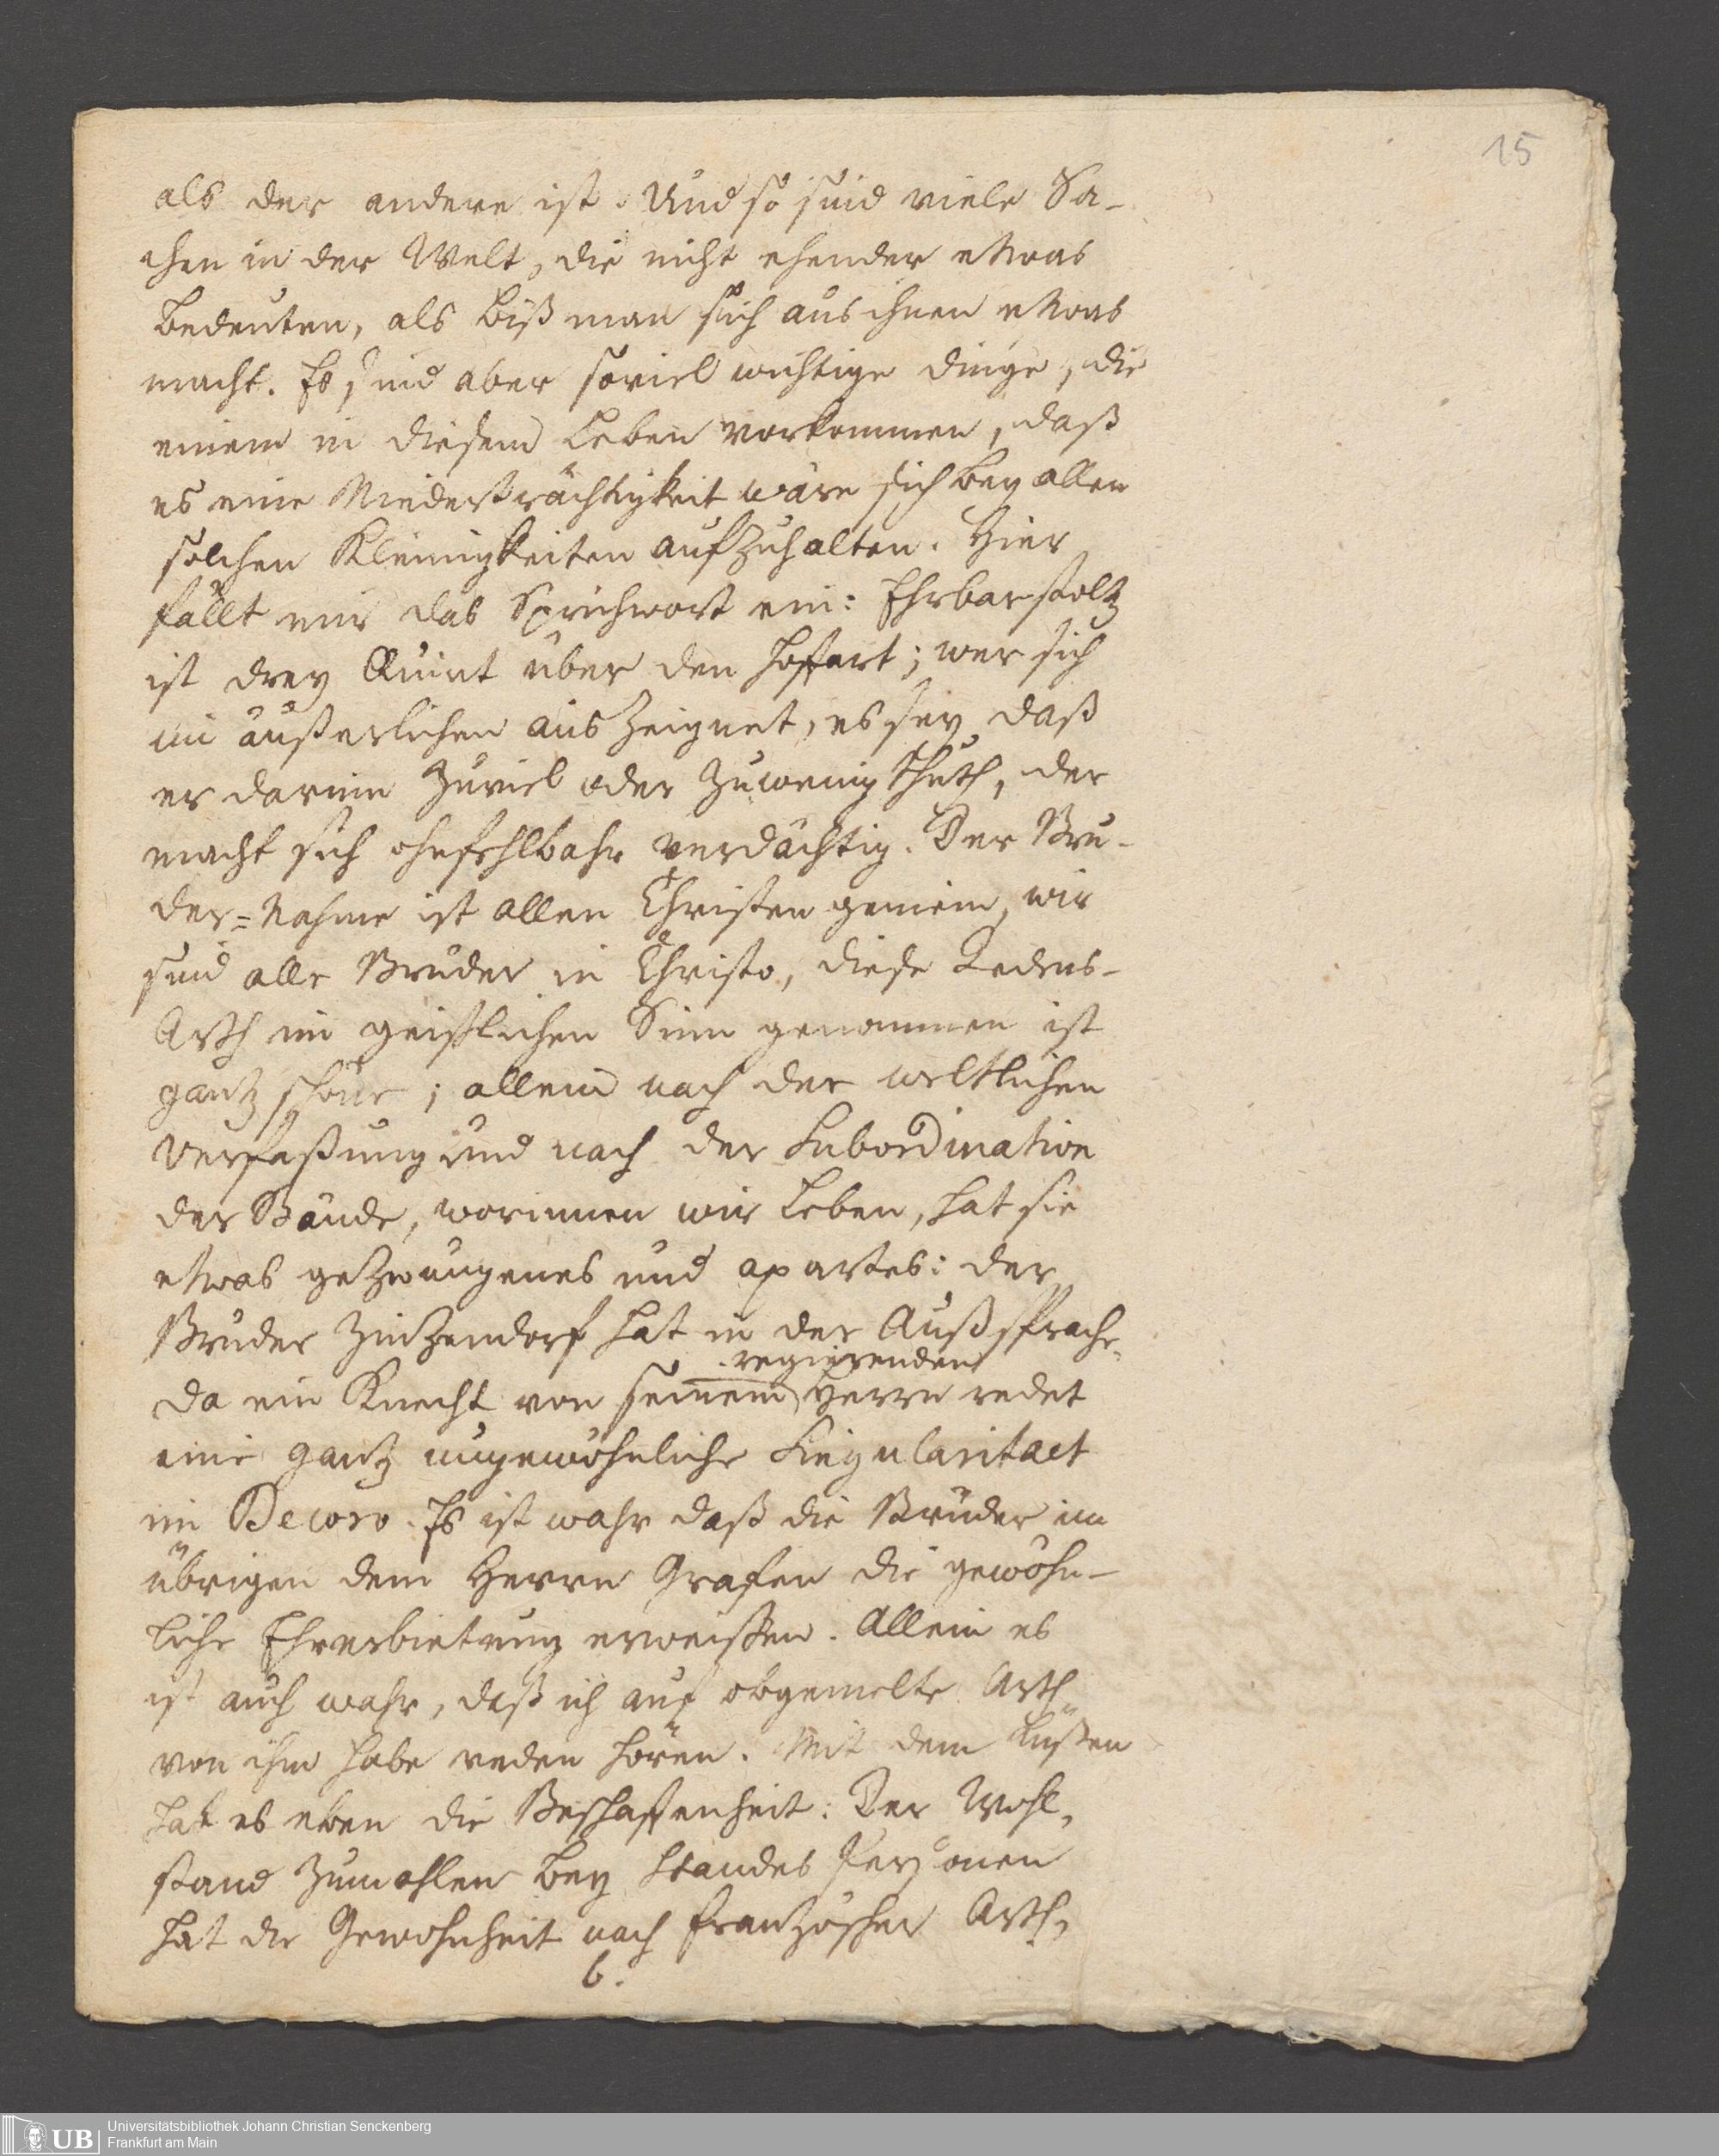 15
als der andere ist. Und so sind viele Sa-
chen in der Welt, die nicht ehender etwas
bedeuten, als biß man sich aus ihnen etwas
macht. Es sind aber soviel wichtige dinge, die
einem in diesem Leben vorkommen, daß
es eine Niederträchtigkeit wäre sich bey allen
solchen Kleinigkeiten aufzuhalten. Hier
fällt mir das Sprichwort ein: Ehrbar stoltz
ist drey Quint über den hoffart; wer sich
im äußerlichen auszeignet, es sey daß
er darinn zuviel oder zuwenig thuth, der
macht sich ohnfehlbahr verdächtig. Der Bru-
der=Nahme ist allen Christen gemein, wir
sind alle Brüder in Christo, diese Redens-
Arth im geistlichen Sinn genommen ist
gantz schöne; allein nach der weltlichen
Verfaßung und nach der Subordination
der Stände, worinnen wir leben, hat sie
etwas gezwungenes und apartes: der
Bruder Zinzendorf hat in der Außsprache
regierenden
da ein Knecht von seinem Herrn redet
eine gantz ungewöhnliche Singularitaet
im Decoro. Es ist wahr daß die Brüder im
übrigen dem Herrn Grafen die gewöhn-
liche Ehrerbietung erweissen. Allein es
ist auch wahr, daß ich auf obgemelte Arth
von ihm habe reden hören. Mit dem Küßen
hat es eben die Beschaffenheit: Der Wohl-
stand zumahlen bey Standes Personen
hat die Gewohnheit nach französcher Arth,
6.
UB
Universitätsbibliothek Johann Christian Senckenberg
Frankfurt am Main